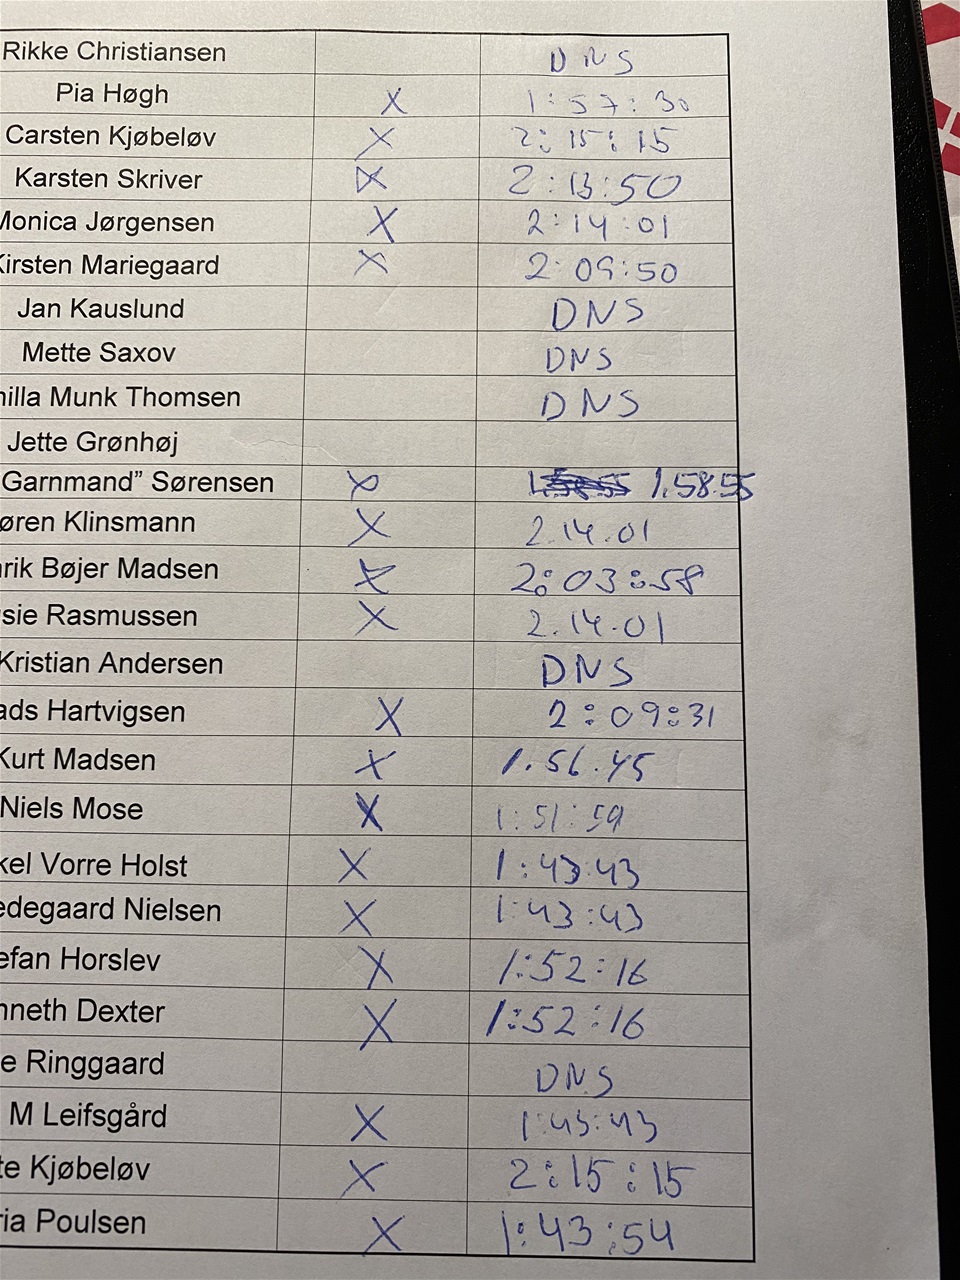 Rikke Christiansen DNS
Pia Høgh X 1:57:30
Carsten Kjøbeløv X 2:15:15
Karsten Skriver X 2:13:50
Monica Jørgensen X 2:14:01
Kirsten Mariegaard X 2:09:50
Jan Kauslund DNS
Mette Saxov DNS
illa Munk Thomsen DNS
Jette Grønhøj
Garnmand” Sørensen X 1.58.55
øren Klinsmann X 2.14.01
rik Bøjer Madsen X 2:03:58
sie Rasmussen X 2.14.01
Kristian Andersen DNS
ads Hartvigsen X 2:09:31
Kurt Madsen X 1.56.45
Niels Mose X 1:51:59
kel Vorre Holst X 1:43:43
edegaard Nielsen X 1:43:43
efan Horslev X 1:52:16
nneth Dexter X 1:52:16
e Ringgaard DNS
M Leifsgård X 1:43:43
te Kjøbeløv X 2:15:15
ria Poulsen X 1:43:54